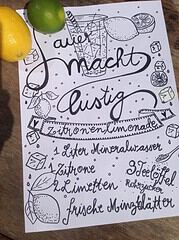 Sauer
macht
lustig
Zitronenlimonade
1 Liter Mineralwasser
1 Zitrone
2 Limetten
3 Teelöffel
Rohrzucker
frische Minzblätter